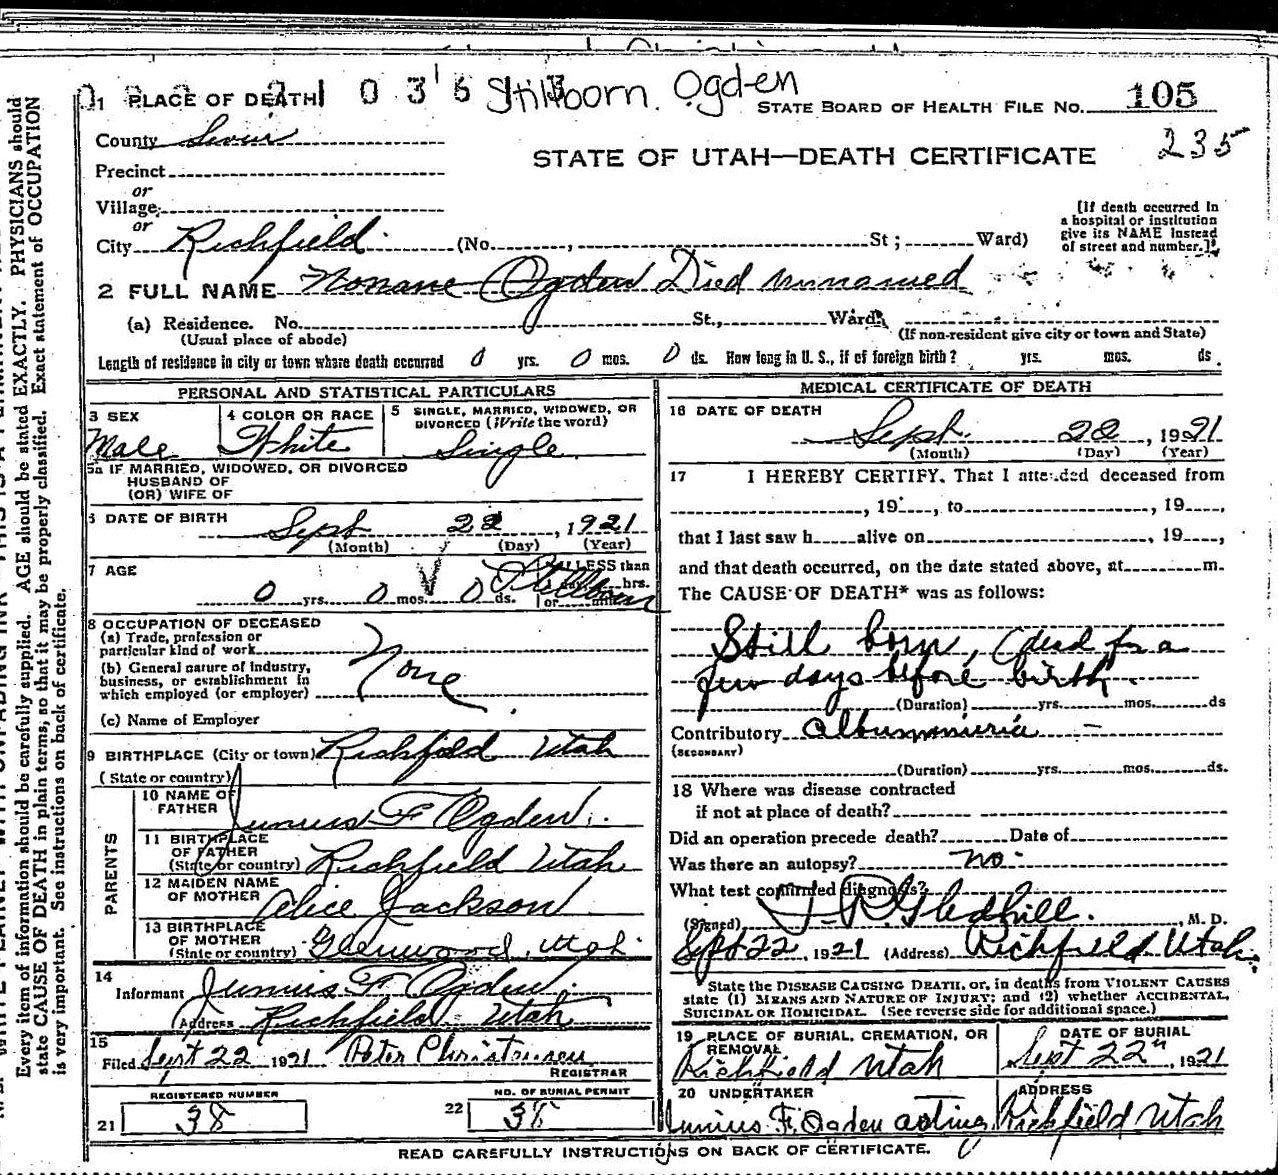 1 PLACE OF DEATH 0 3 5 Stillborn. Ogden STATE BOARD OF HEALTH FILE No. 105
County Sevier 235
STATE OF UTAH—DEATH CERTIFICATE
Precinct
or
Village
or
City Richfield (No. , St ; Ward)
[If death occurred in a hospital or institution give its NAME instead of street and number.]
2 FULL NAME Noname Ogden Died unnamed
(a) Residence. No. St., Ward,
(Usual place of abode) (If non-resident give city or town and State)
Length of residence in city or town where death occurred 0 yrs. 0 mos. 0 ds. How long in U. S., if of foreign birth? yrs. mos. ds.
PERSONAL AND STATISTICAL PARTICULARS
3 SEX 4 COLOR OR RACE 5 SINGLE, MARRIED, WIDOWED, OR DIVORCED (Write the word)
Male White Single
5a IF MARRIED, WIDOWED, OR DIVORCED
HUSBAND OF
(OR) WIFE OF
6 DATE OF BIRTH
Sept 22, 1921
(Month) (Day) (Year)
7 AGE If LESS than
0 yrs. 0 mos. 0 ds. Stillborn hrs.
or
8 OCCUPATION OF DECEASED
(a) Trade, profession or
particular kind of work
(b) General nature of industry,
business, or establishment in
which employed (or employer)
None
(c) Name of Employer
9 BIRTHPLACE (City or town) Richfield Utah
(State or country)
PARENTS
10 NAME OF
FATHER Junius F Ogden
11 BIRTHPLACE
OF FATHER
(State or country) Richfield Utah
12 MAIDEN NAME
OF MOTHER Alice Jackson
13 BIRTHPLACE
OF MOTHER
(State or country) Glenwood, Utah
14
Informant Junius F. Ogden
Address Richfield Utah
15
Filed Sept 22 1921 Peter Christensen
REGISTRAR
REGISTERED NUMBER NO. OF BURIAL PERMIT
21 38 22 38
MEDICAL CERTIFICATE OF DEATH
16 DATE OF DEATH
Sept. 22, 1921
(Month) (Day) (Year)
17 I HEREBY CERTIFY, That I attended deceased from
, 19 , to , 19 ,
that I last saw h alive on , 19 ,
and that death occurred, on the date stated above, at m.
The CAUSE OF DEATH* was as follows:
Still born, (dead for a
few days before birth.
(Duration) yrs. mos. ds
Contributory Albuminuria
(SECONDARY)
(Duration) yrs. mos. ds.
18 Where was disease contracted
if not at place of death?
Did an operation precede death? Date of
Was there an autopsy? no.
What test confirmed diagnosis?
(Signed) J. R. Gledhill. M. D.
Sept 22, 1921 (Address) Richfield Utah.
State the DISEASE CAUSING DEATH, or, in deaths from VIOLENT CAUSES
state (1) MEANS AND NATURE OF INJURY; and (2) whether ACCIDENTAL,
SUICIDAL OR HOMICIDAL. (See reverse side for additional space.)
19 PLACE OF BURIAL, CREMATION, OR REMOVAL DATE OF BURIAL
Richfield Utah Sept 22", 1921
20 UNDERTAKER ADDRESS
Junius F. Ogden acting Richfield Utah
READ CAREFULLY INSTRUCTIONS ON BACK OF CERTIFICATE.
Every item of information should be carefully supplied. AGE should be stated EXACTLY. PHYSICIANS should
state CAUSE OF DEATH in plain terms, so that it may be properly classified. Exact statement of OCCUPATION
is very important. See instructions on back of certificate.